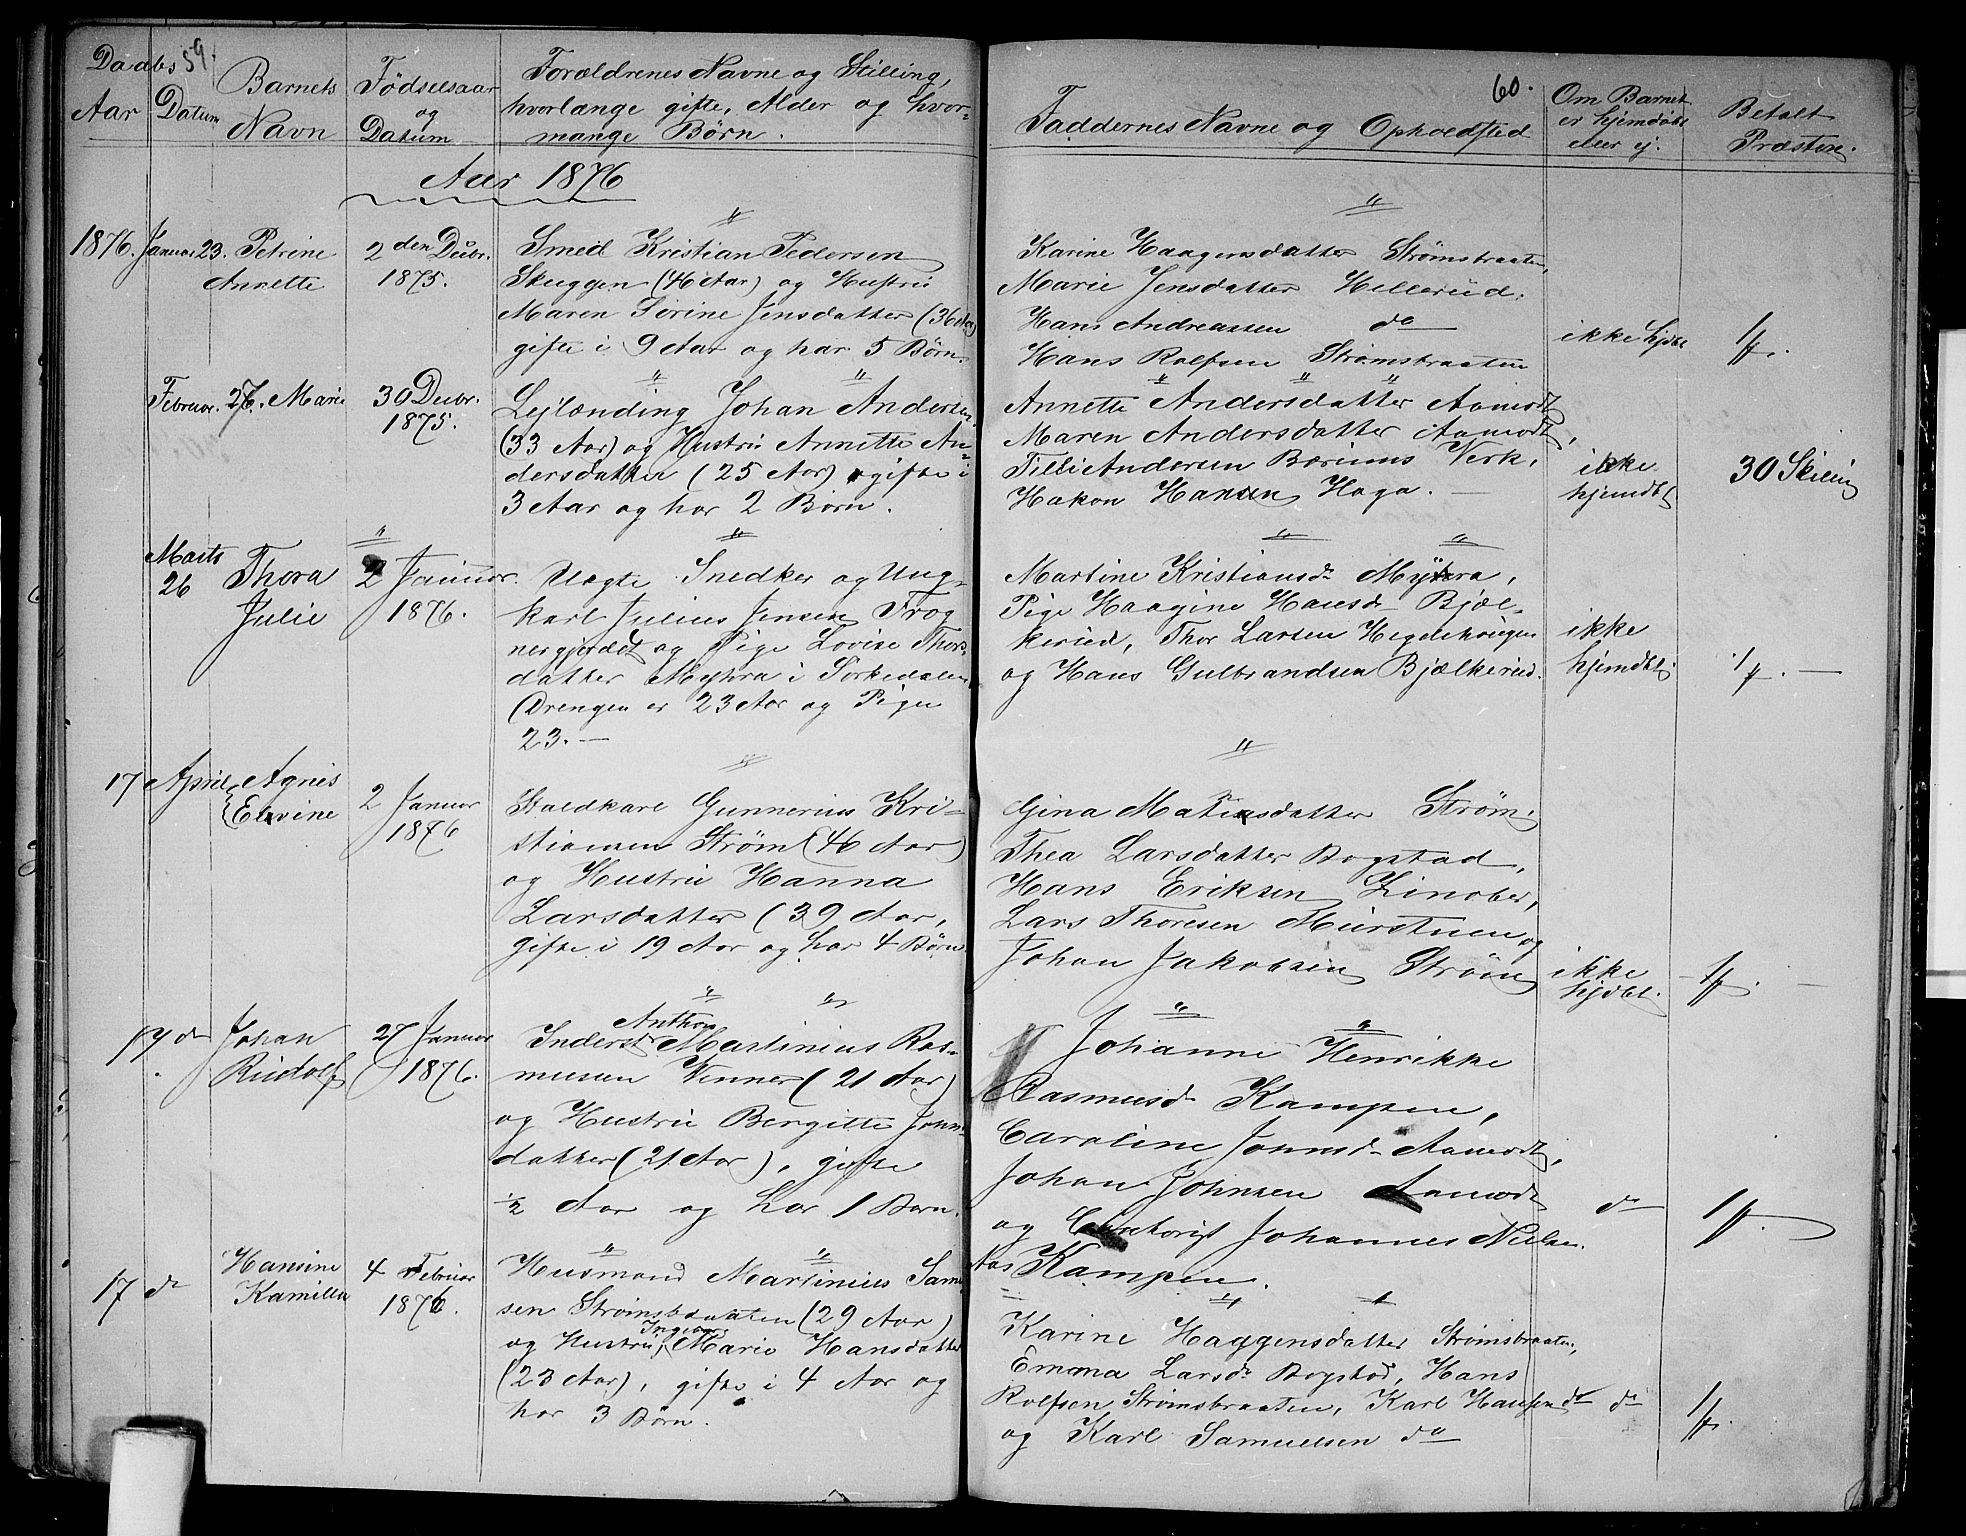 59.
Daabs
Aar
Datum
Barnets
Navn
Fødselsaar
og
Datum
Forældrenes Navne og Stilling,
hvorlænge gifte, Alder og hvor-
mange Børn.
60.
Faddernes Navne og Opholdsted
Om Barnet
er hjemdøbt
eller ej.
Betalt
Præsten.
Aar 1876
1876. Januar 23. Petrine
Annette
2den Decbr.
1875.
Smed Kristian Pedersen
Skuggen (46 Aar) og Hustru
Maren Sørine Jensdatter (36 Aar)
gifte i 9 Aar og har 5 Børn.
Karine Haagensdatter Strømsbraaten,
Marie Jensdatter Hellerud.
Hans Andreassen do
Hans Rolfsen Strømsbraaten
ikke hjdbt
Februar. 27. Marie
30 Decbr.
1875.
Lejlænding Johan Andersen
(33 Aar) og Hustru Annette An-
dersdatter (25 Aar) gifte i
3 Aar og har 2 Børn.
Annette Andersdatter Aamodt
Maren Andersdatter Aamodt,
Tilli Andersen Bærums Verk,
Hakon Hansen Haga.
ikke
hjemdbt
30 Skilling
Marts
26
Thora
Julie
2 Januar.
1876.
Uægte Snedker og Ung-
karl Julius Jensen Frog
nergjerdet og Pige Lovise Thors-
datter Myhra i Sørkedalen
(Drengen er 23 Aar og Pigen
23.—
Martine Kristiansd. Myhra,
Pige Haagine Hansd. Bjæl-
kerud, Thor Larsen Hegdehougen
og Hans Gulbrandsen Bjælkerud.
ikke
hjemdbt.
17 April Agnis
Elvine
2 Januar
1876
Staldkarl Gunnerius Kri-
stiansen Strøm (46 Aar)
og Hustru Hanna
Larsdatter (39 Aar,
gifte i 19 Aar og har 4 Børn
Gina Matisdatter Strøm.
Thea Larsdatter Bogstad,
Hans Eriksen Zinober,
Lars Thoresen Murstuen og
Johan Jakobsen Strøm
ikke
hjdbt.
17 do Johan
Rudolf
27 Januar
1876.
Anthon
Inderst Martinius Ras-
musen Venner (21 Aar)
og Hustru Bergitte John-
datter (21 Aar), gifte
1/2 Aar og har 1 Barn.
Johanne Henrikke
Rasmusd. Kampen,
Caroline Johnsd. Aamodt,
Johan Johnsen Aamodt
og Johannes Nielsen
Kampen.
do
17 do
Hansine
Kamilla
4 Februar
1876.
Husmand Martinius Sam
sen Strømsbraaten (29 Aar)
Ingebor
og Hustru Marie Hansdatter
(23 Aar), gifte i 4 Aar og
har 3 Børn.
Karine Haggensdatter Strømsbraaten,
Emma Larsd. Bogstad, Hans
Rolfsen Strømsbraaten, Karl Hansen do
og Karl Samuelsen do
do